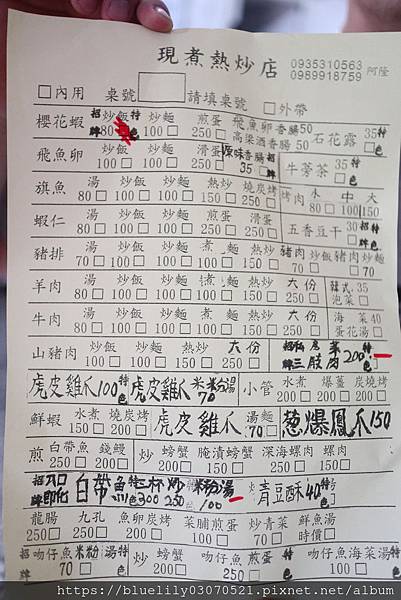 現煮熱炒店 0935310563
0989918759 阿隆
□內用 桌號 請填桌號 □外帶
櫻花蝦 招牌 炒飯 特色 80 炒麵 100□ 煎蛋 250□ 飛魚卵香腸50 高梁酒香腸50 石花露 35□ 特色
飛魚卵 炒飯 100□ 炒麵 100□ 滑蛋 250□ 原味香腸 35 招牌 牛蒡茶 35□ 特色
旗魚 湯 80□ 炒飯 100□ 炒麵 100□ 熱炒 150□ 燒炭烤 250□ 烤肉 小 80□ 中 100 大 150
蝦仁 湯 80□ 炒飯 100□ 炒麵 100□ 煎蛋 200□ 滑蛋 250□ 五香豆干 30□ 招牌 特色
豬排 湯 70□ 炒飯 100□ 炒麵 100□ 煮麵 100□ 熱炒 150□ 豬肉炒飯 70□ 豬肉炒麵 70
羊肉 湯 80□ 炒飯 100□ 炒麵 100□ 煮麵 100□ 熱炒 150□ 大份 250□ 韓式泡菜 35□
牛肉 湯 80□ 炒飯 100□ 炒麵 100□ 煮麵 100□ 熱炒 150□ 大份 250□ 海菜蛋花湯 40□
山豬肉 炒飯 100□ 炒麵 100□ 熱炒 150□ 大份 250□ 招牌 肉 200 特色
虎皮雞爪100 特色 虎皮雞爪米粉湯 70 小管 水煮 200□ 爆薑 200□ 燒炭烤 200□
鮮蝦 水煮 200□ 燒炭烤 200□ 虎皮雞爪 湯麵 70□ 葱爆鳳爪150
煎 白帶魚 250□ 錢鰻 200□ 炒 螃蟹 200□ 腌漬螃蟹 250□ 深海螺肉 250□ 螺肉 150□
招牌 入口即化 白帶魚 300 250 炒米粉湯 100 青豆酥40 特色
龍腸 250□ 九孔 200□ 魚卵炭烤 200□ 菜脯煎蛋 100□ 炒青菜 100□ 鮮魚湯 時價□
招牌 吻仔魚米粉湯 70□ 特色 炒 螃蟹 200□ 吻仔魚煎蛋 250□ 特色 吻仔魚海菜湯 100□ 特色
https://bluelily03070521.pixnet.net/album